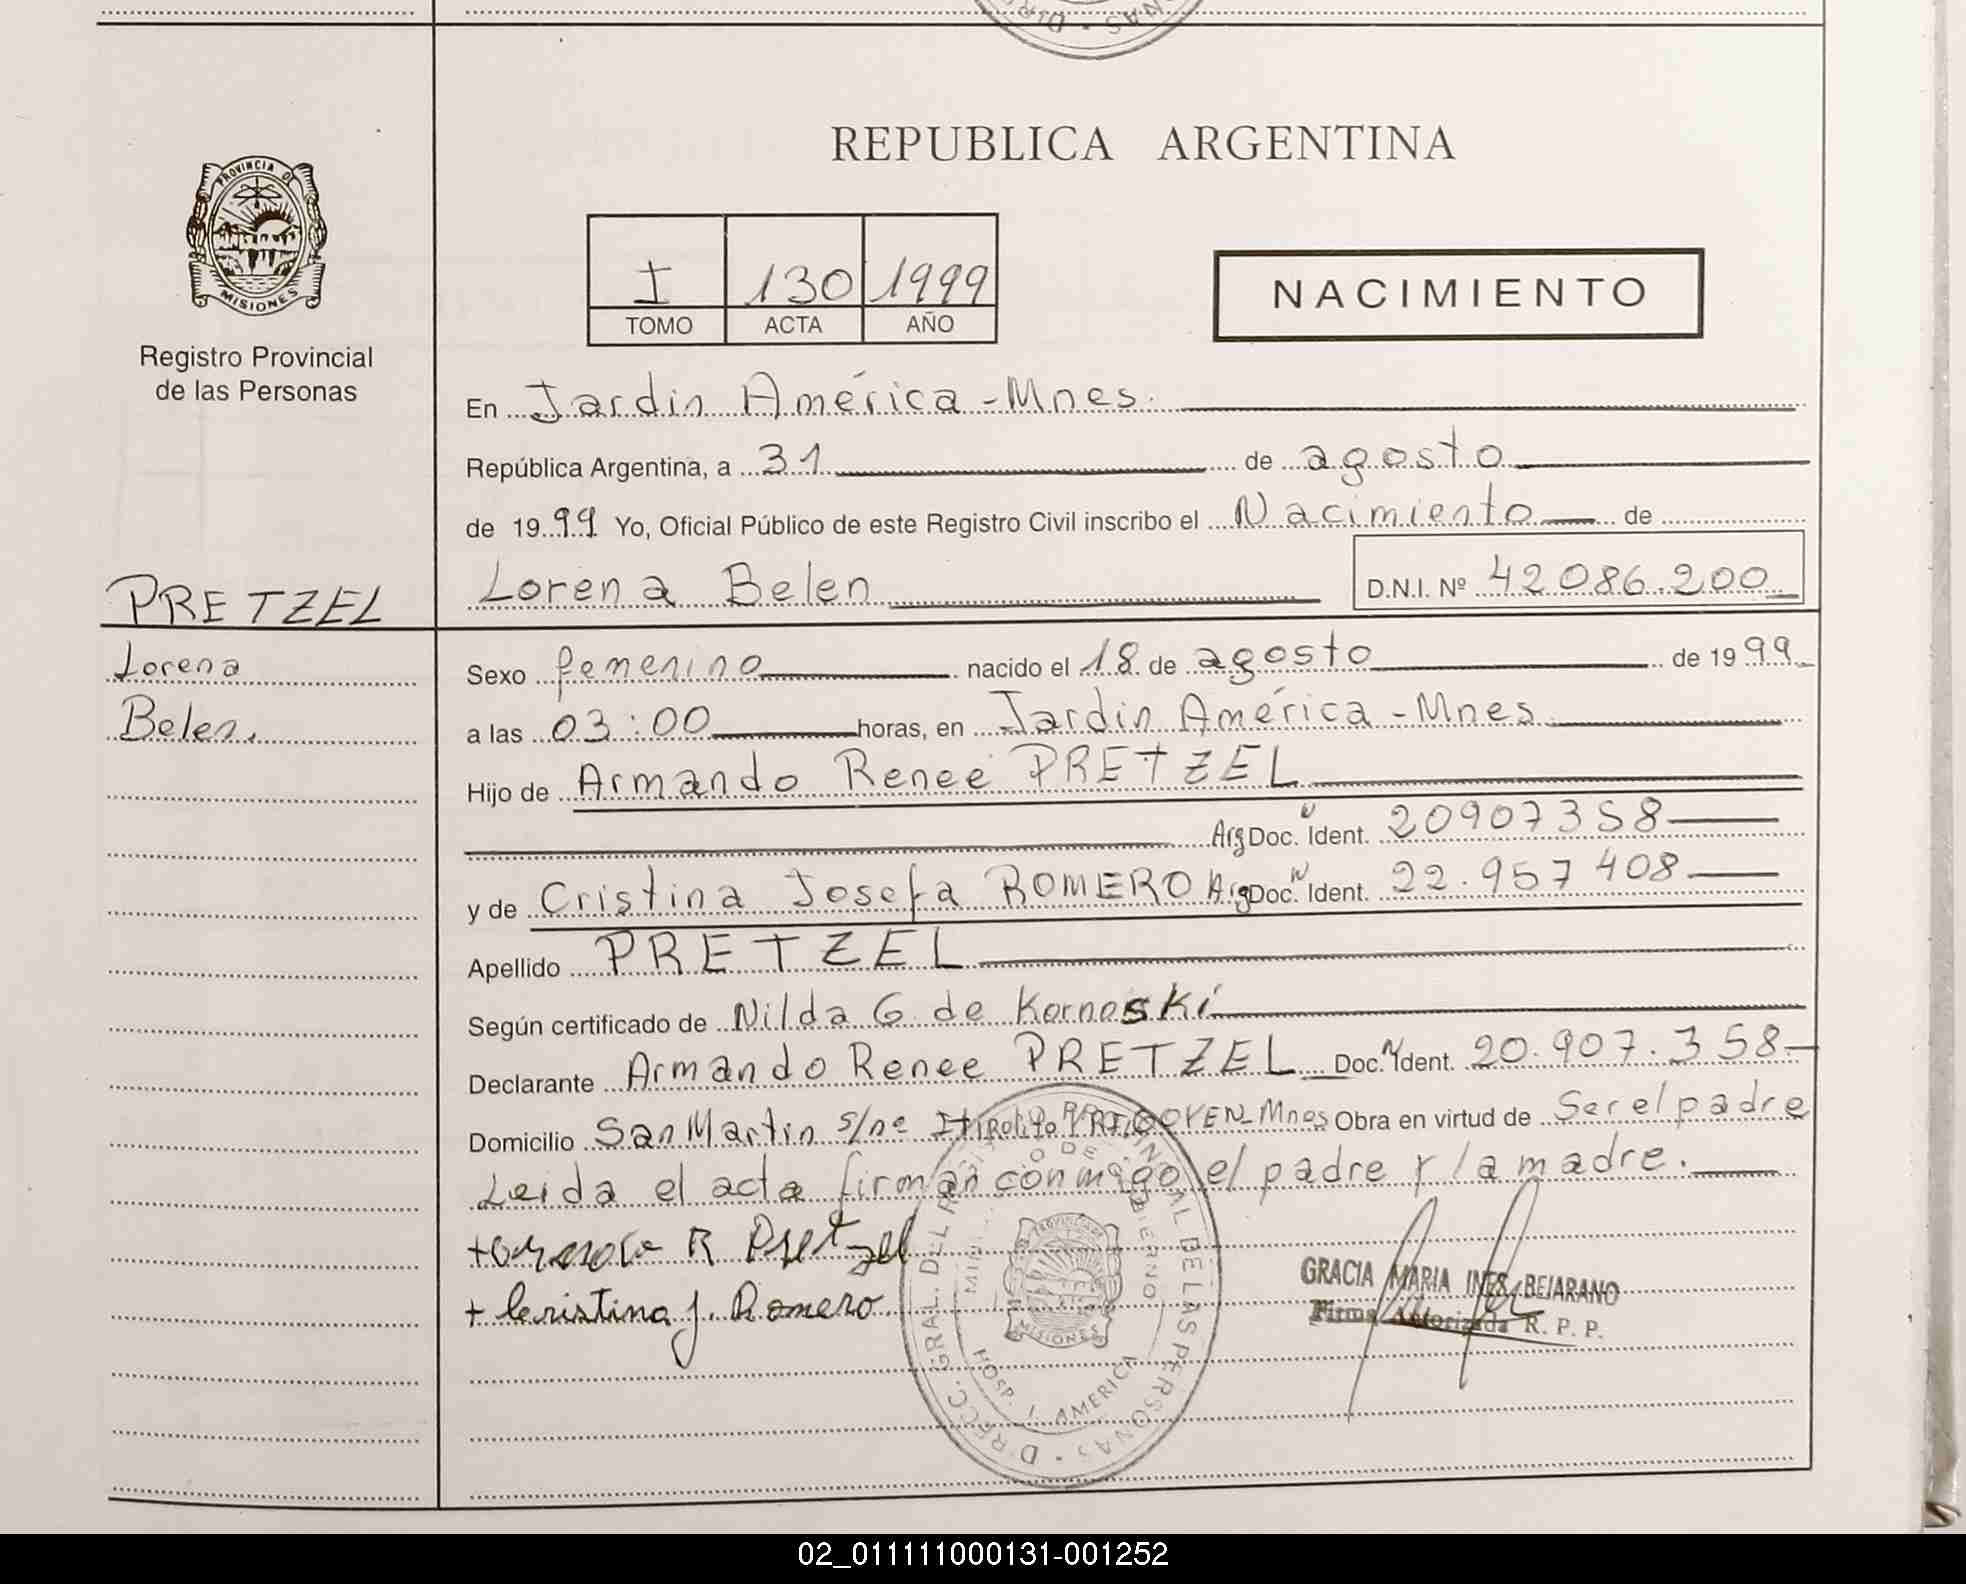 REPUBLICA ARGENTINA
PROVINCIA DE
MISIONES
Registro Provincial
de las Personas
I 130 1999
TOMO ACTA AÑO
NACIMIENTO
En Jardin América - Mnes.
República Argentina, a 31 de agosto
de 1999 Yo, Oficial Público de este Registro Civil inscribo el Nacimiento de
PRETZEL
Lorena Belen D.N.I. Nº 42086.200
Lorena
Belen.
Sexo femenino nacido el 18 de agosto de 1999
a las 03:00 horas, en Jardin América - Mnes
Hijo de Armando Renee PRETZEL
Arg Doc. N Ident. 20907358
y de Cristina Josefa ROMERO Arg Doc. N Ident. 22.957408
Apellido PRETZEL
Según certificado de Nilda G. de Kornoski
Declarante Armando Renee PRETZEL Doc. N Ident. 20.907.358
Domicilio San Martin s/nº Mnes Obra en virtud de Ser el padre
Leida el acta firman conmigo el padre y la madre.
R Pretzel
+ Cristina J. Romero
GRACIA MARIA INES BEJARANO
Firma Autorizada R. P. P.
DIRECC. GRAL. DEL PROVINCIAL DE LAS PERSONAS
HOSP. J. AMERICA
PROVINCIA
MISIONES
02_011111000131-001252